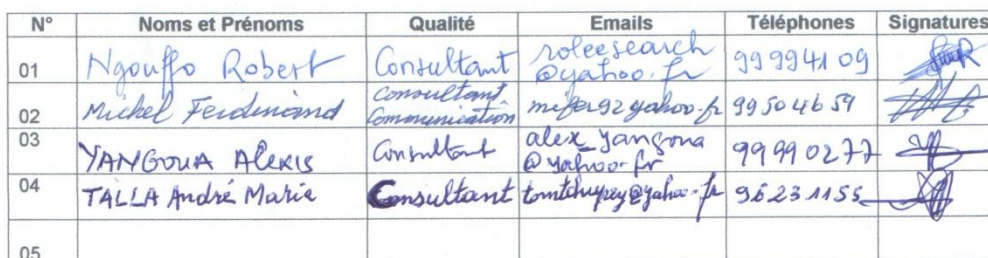 N° Noms et Prénoms Qualité Emails Téléphones Signatures
01 Ngouffo Robert Consultant roleesearch @yahoo.fr 99994109
02 Michel Ferdinand Consultant Communication 99504659
03 YANGOUA Alexis Consultant alex_yangoua @yahoo.fr 99990277
04 TALLA André Marie Consultant 96231155
05